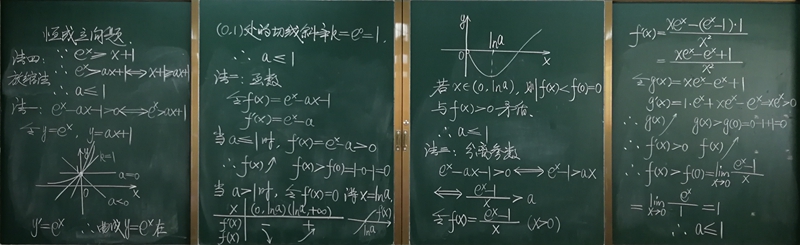 恒成立问题
法四: ∵ eˣ ≥ x+1
放缩法 ∴ eˣ > ax+1 ⟺ x+1 ≥ ax+1
∴ a ≤ 1
法一: eˣ-ax-1>0 ⟺ eˣ>ax+1
令 y=eˣ, y=ax+1
y
k=1
a=0
0
x
a<0
y'=eˣ ∴曲线y=eˣ在
(0,1)处的切线斜率k=e⁰=1.
∴ a ≤ 1
法二: 函数
令f(x)=eˣ-ax-1
f'(x)=eˣ-a
当 a≤1时, f'(x)=eˣ-a>0
∴ f(x)↗ f(x)>f(0)=1-0-1=0
当 a>1时, 令f'(x)=0 得x=lna,
x (0,lna) (lna,+∞)
f'(x) - +
f(x) ↘ ↗
f(x)
lna
y
lna
0
x
若 x∈(0,lna), 则f(x)<f(0)=0
与f(x)>0矛盾.
∴ a ≤ 1
法三: 分离参数
eˣ-ax-1>0 ⟺ eˣ-1>ax
⟺ (eˣ-1)/x > a
令f(x)=(eˣ-1)/x (x>0)
f'(x)=(xeˣ-(eˣ-1)·1)/x²
=(xeˣ-eˣ+1)/x²
令g(x)=xeˣ-eˣ+1
g'(x)=1·eˣ+xeˣ-eˣ=xeˣ>0
∴ g(x)↗ g(x)>g(0)=0-1+1=0
∴ f'(x)>0 f(x)↗
∴ f(x)>f(0)=lim x→0 (eˣ-1)/x
=lim x→0 eˣ/1=1
∴ a ≤ 1